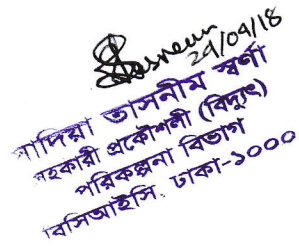 29/04/18
াদিয়া তাসনীম স্বর্ণা
সহকারী প্রকৌশলী (বিদ্যুৎ)
পরিকল্পনা বিভাগ
বিসিআইসি, ঢাকা-১০০০